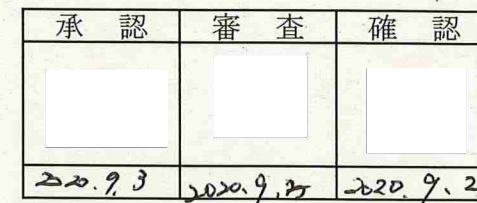 承認 審査 確認
2020.9.3 2020.9. 2020.9.2